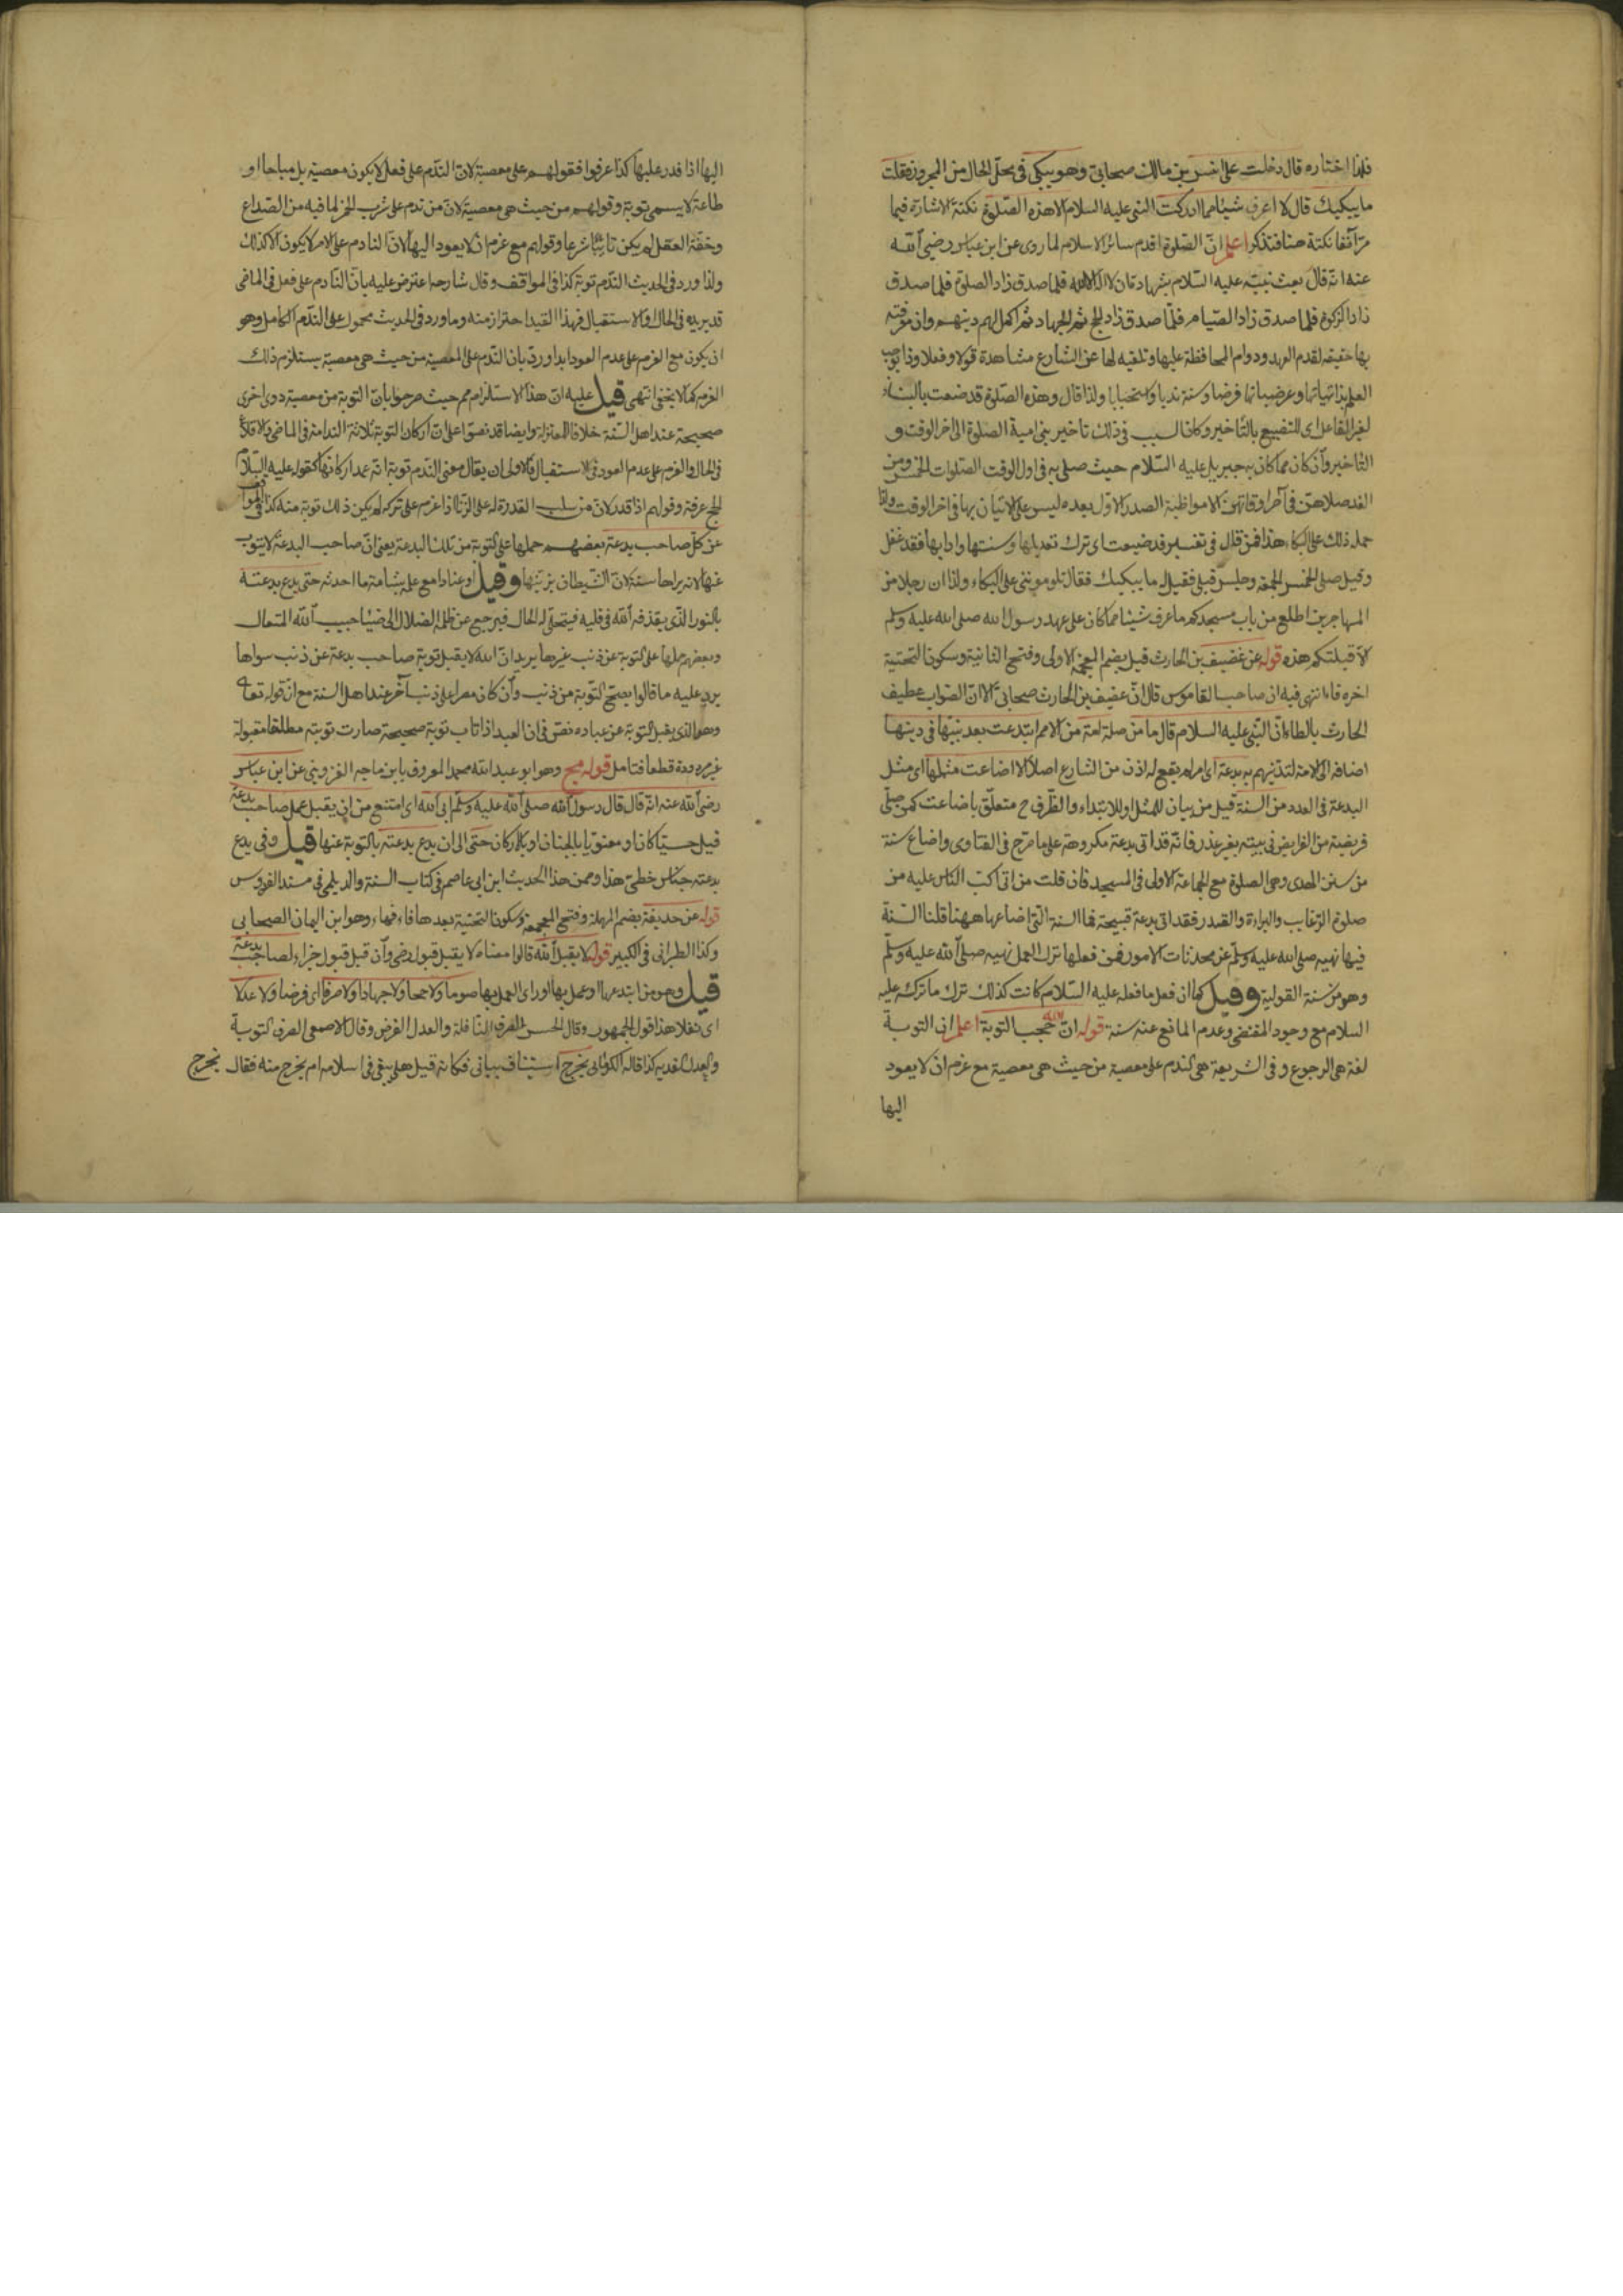 فلذا اختاره قال دخلت على انس بن مالك صحابي وهو يبكي في محل الحال من المجرور فقلت
ما يبكيك قال لا اعرف شيئا مما ادركت النبي عليه السلام الا هذه الصلوة نكتة الاشارة فيما
مر آنفا نكتة هنا فتذكر اعلم ان الصلوة اقدم سائر الاسلام لما روى عن ابن عباس رضي الله
عنه انه قال بعث نبيه عليه السلام بشهادة ان لا اله الا الله فلما صدق زاد الصلوة فلما صدق
زاد الزكوة فلما صدق زاد الصيام فلما صدق زاد الحج ثم الجهاد ثم اكمل لهم دينهم وان معرفته
بها حقيقه لقدم العهد ودوام المحافظة عليها وتلقيه لها عن الشارع مشاهدة قولا وفعلا وذا يوجب
العلم بذاتياتها وعرضياتها فرضا وسنة ندبا واستحبابا ولذا قال وهذه الصلوة قد ضيعت بالبناء
لغير الفاعل اى للتضييع بالتأخير وكان السبب في ذلك تأخير بني امية الصلوة الى اخر الوقت و
التأخير وان كان مما كان به جبريل عليه السلام حيث صلى به في اول الوقت الصلوات الخمس ومن
الغد صلاهن في آخر اوقاتهن الا مواظبة الصدر الاول بعده ليس على الاتيان بها في اخر الوقت وانما
حمله ذلك على البكاء هذا فمن قال في تفسير قد ضيعت اى ترك تعديلها وسنتها وادابها فقد غفل
وقيل صلى الخمس الجمعة وجلس قبلي فقيل له ما يبكيك فقال تلومونني على البكاء ولذا ان رجلا من
المهاجرين اطلع من باب مسجدكم ما عرف شيئا مما كان على عهد رسول الله صلى الله عليه وسلم
الا قبلتكم هذه قوله عن غضيف بن الحارث قيل بضم المعجمة الاولى وفتح الثانية وسكون التحتية
اخره فاء انتهى فيه ان صاحب القاموس قال ان غضيف بن الحارث صحابي الا ان الصواب عطيف
الحارث بالطاء ان النبي عليه السلام قال ما من صلة امة من الامم ابتدعت بعد نبيها في دينها
اضافه الى الامة لتدينهم به بدعة اى امرا لم يقع له اذن من الشارع اصلا الا اضاعت مثلها اى مثل
البدعة في العدد من السنة قيل من بيان للمثل او للابتداء والظرف ح متعلق باضاعت كمن صلى
فريضة من الفرايض في بيته بغير عذر فانه قد اتى بدعة مكروهة على ما صرح في الفتاوى واضاع سنة
من سنن الهدى وهى الصلوة مع الجماعة الاولى في المسجد فان قلت من اتى اكب الناس عليه من
صلوة الرغايب والبراءة والقدر فقد اتى بدعة قبيحة فما السنة التى اضاعها ههنا قلنا السنة
فيها نهيه صلى الله عليه وسلم عن محدثات الامور فمن فعلها ترك العمل بنهيه صلى الله عليه وسلم
وهو من سنة القولية وقيل كما ان فعل ما فعله عليه السلام كانت كذلك ترك ما تركه عليه
السلام مع وجود المقتضى وعدم المانع عنه سنة قوله ان الله حجب التوبة اعلم ان التوبة
لغة هى الرجوع و في الشريعة هى الندم على معصية من حيث هى معصية مع عزم ان لا يعود
اليها
اليها اذا قدر عليها كذا عرفوا فقولهم على معصية لان الندم على فعل لا يكون معصية بل مباحا او
طاعة لا يسمى توبة وقولهم من حيث هى معصية لان من ندم على شرب الخمر لما فيه من الصداع
وخفة العقل لم يكن تائبا شرعا وقولهم مع عزم ان لا يعود اليها لان النادم على الامر لا يكون الا كذلك
ولذا ورد في الحديث الندم توبة كذا في المواقف وقال شارحه اعترض عليه بان النادم على فعل في الماضى
قد يريده في الحال او الاستقبال فهذا القيد احتراز منه وما ورد في الحديث محمول على الندم الكامل وهو
ان يكون مع العزم على عدم العود ابدا ورد بان الندم على المعصية من حيث هى معصية يستلزم ذلك
العزم كما لا يخفى انتهى قيل عليه ان هذا الاستلزام مم حيث صرحوا بان التوبة من معصية دون اخرى
صحيحة عند اهل السنة خلافا للمعتزلة وايضا قد نصوا على ان اركان التوبة ثلاثة الندامة في الماضى والاقلاع
في الحال والعزم على عدم العود في الاستقبال فالاولى ان يقال معنى الندم توبة انه عمد اركانها كقوله عليه السلام
الحج عرفة وقولهم اذا قدر لان من سلب القدرة له على الزنا اذا عزم على تركه لم يكن ذلك توبة منه كذا في المواقف
عن كل صاحب بدعة بعضهم حملها على التوبة من تلك البدعة يعنى ان صاحب البدعة لا يتوب
عنها لانه يراها سنة لان الشيطان يزينها وقيل او عنادا مع علم بشامة ما احدثه حتى يدع بدعته
بالنور الذى يقذفه الله في قلبه فيتجلى له الحال فيرجع عن ظلمة الضلال الى ضياء حبيب الله المتعال
وبعضهم حملها على التوبة عن ذنب غيرها يريد ان الله لا يقبل توبة صاحب بدعة عن ذنب سواها
يرد عليه ما قالوا يصح التوبة من ذنب وان كان مصرا على ذنب آخر عند اهل السنة مع ان قوله تعالى
وهو الذى يقبل التوبة عن عباده نص في ان العبد اذا تاب توبة صحيحة صارت توبته مطلقا مقبولة
غير مردودة قطعا فتامل قوله مج وهو ابو عبد الله محمد المعروف بابن ماجه القزوينى عن ابن عباس
رضى الله عنه انه قال قال رسول الله صلى الله عليه وسلم ابى الله اى امتنع من ان يقبل عمل صاحب بدعة
قيل حسيا كان او معنويا بالجنان او بالاركان حتى الى ان يدع بدعته بالتوبة عنها قيل وفي يدع
بدعته جناس خطى هذا وممن هذا الحديث ابن ابى عاصم في كتاب السنة والديلمى في مسند الفردوس
قوله عن حذيفة بضم المهملة وفتح المعجمة وسكون التحتية بعدها فاء فهاء وهو ابن اليمان الصحابى
وكذا الطبرانى في الكبير قوله لا يقبل الله قالوا معناه لا يقبل قبول رضى وان قبل قبول جزاء لصاحب بدعة
قيل وهو من ابتدعها او عمل بها او راى العمل بها صوما ولا حجا ولا جهادا ولا صرفا اى فرضا ولا عدلا
اى نفلا هذا قول الجمهور وقال الحسن الصرف النافلة والعدل الفرض وقال الاصمعى الصرف التوبة
والعدل الفدية كذا قاله الكرمانى يخرج استيناف بيانى فكانه قيل هل يبقى في اسلامه ام يخرج منه فقال يخرج